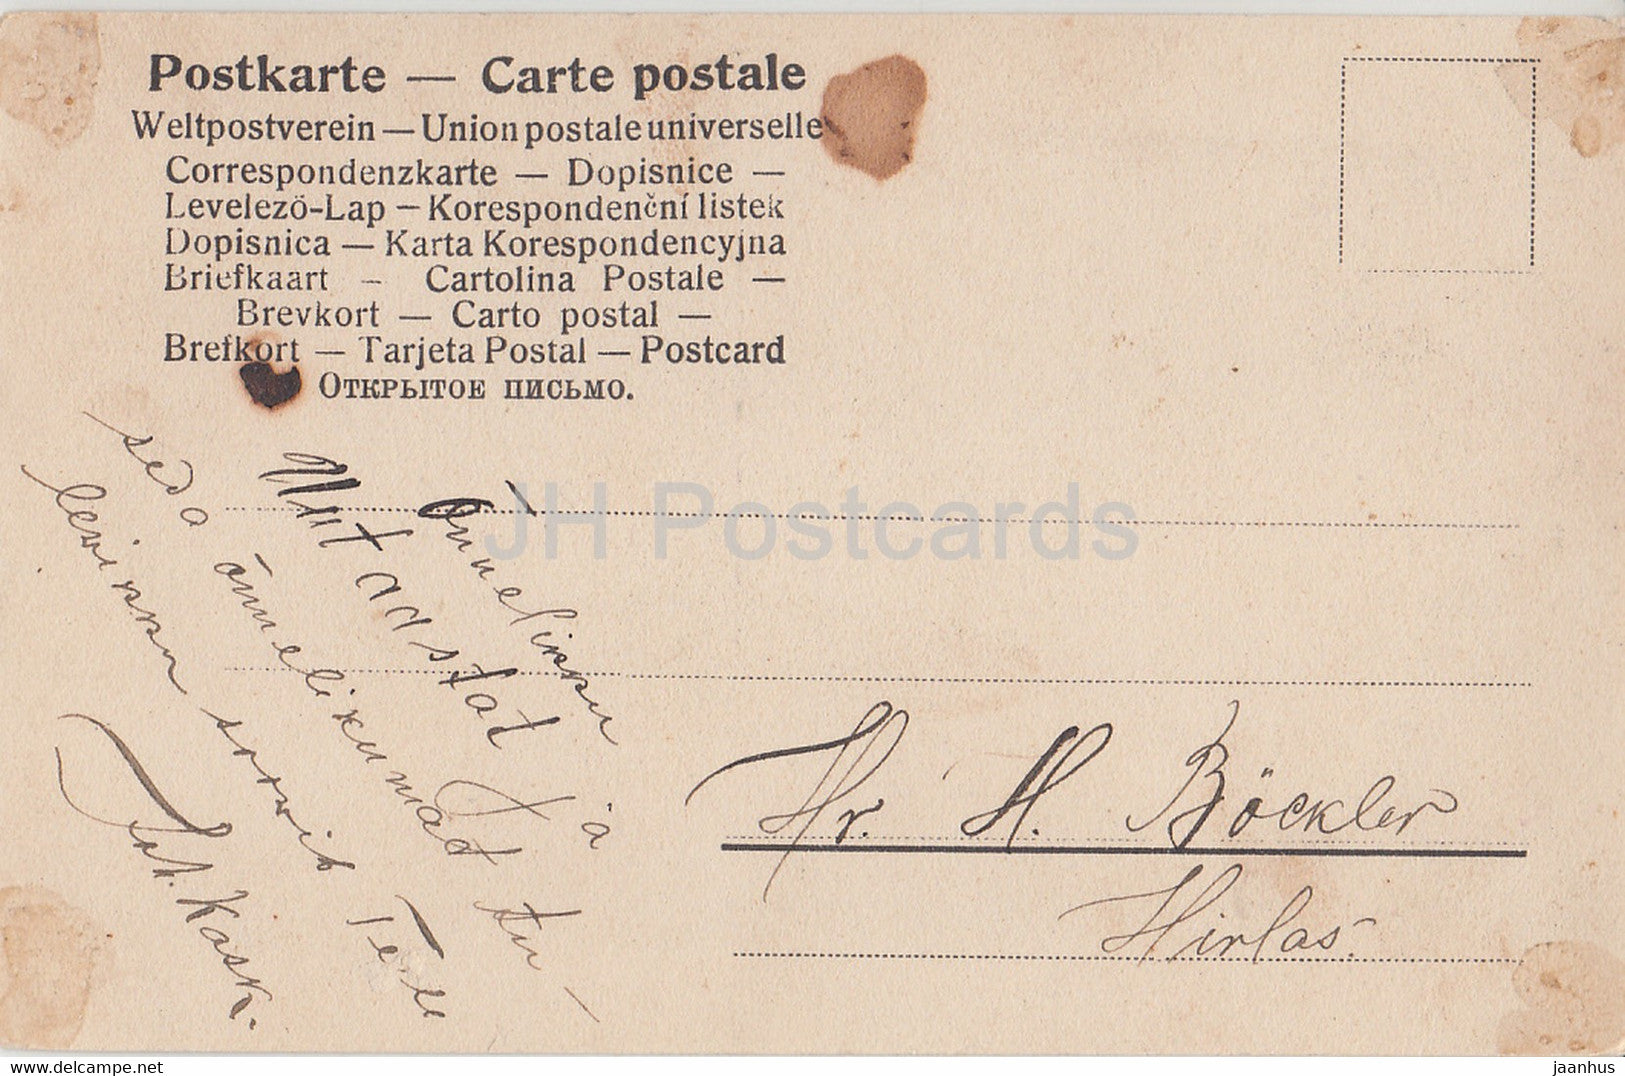 Postkarte — Carte postale
Weltpostverein — Union postale universelle
Correspondenzkarte — Dopisnice —
Levelező-Lap — Korespondenční listek
Dopisnica — Karta Korespondencyjna
Briefkaart — Cartolina Postale —
Brevkort — Carto postal —
Brefkort — Tarjeta Postal — Postcard
Открытое письмо.
Õnnelikku
Uut aastat ja
seda õnnelikumad tu-
lewikku soowib Teile
Joh. Kask.
Hr. H. Böckler
Hirlas.
JH Postcards
www.delcampe.net
jaanhus